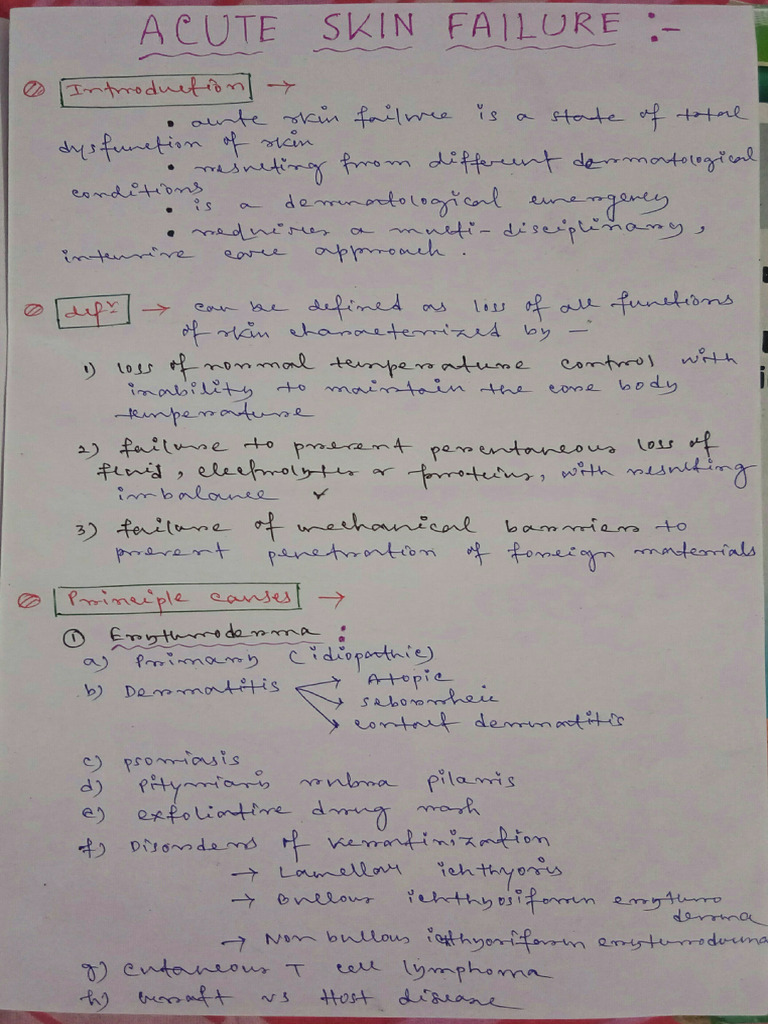 ACUTE SKIN FAILURE :-
Introduction →
• acute skin failure is a state of total
dysfunction of skin
• resulting from different dermatological
conditions
• is a dermatological emergency
• requires a multi-disciplinary,
intensive care approach.
defⁿ → can be defined as loss of all functions
of skin characterized by —
1) loss of normal temperature control with
inability to maintain the core body
temperature
2) failure to prevent percutaneous loss of
fluid, electrolytes or proteins, with resulting
imbalance ✓
3) failure of mechanical barriers to
prevent penetration of foreign materials
Principle causes →
① Erythroderma :
a) Primary (idiopathic)
b) Dermatitis → Atopic
→ seborrheic
→ contact dermatitis
c) psoriasis
d) pityriasis rubra pilaris
e) exfoliative drug rash
f) Disorders of keratinization
→ Lamellar ichthyosis
→ Bullous ichthyosiform erythro
derma
→ Non bullous icthyosiform erythroderma
g) cutaneous T cell lymphoma
h) Graft vs Host disease